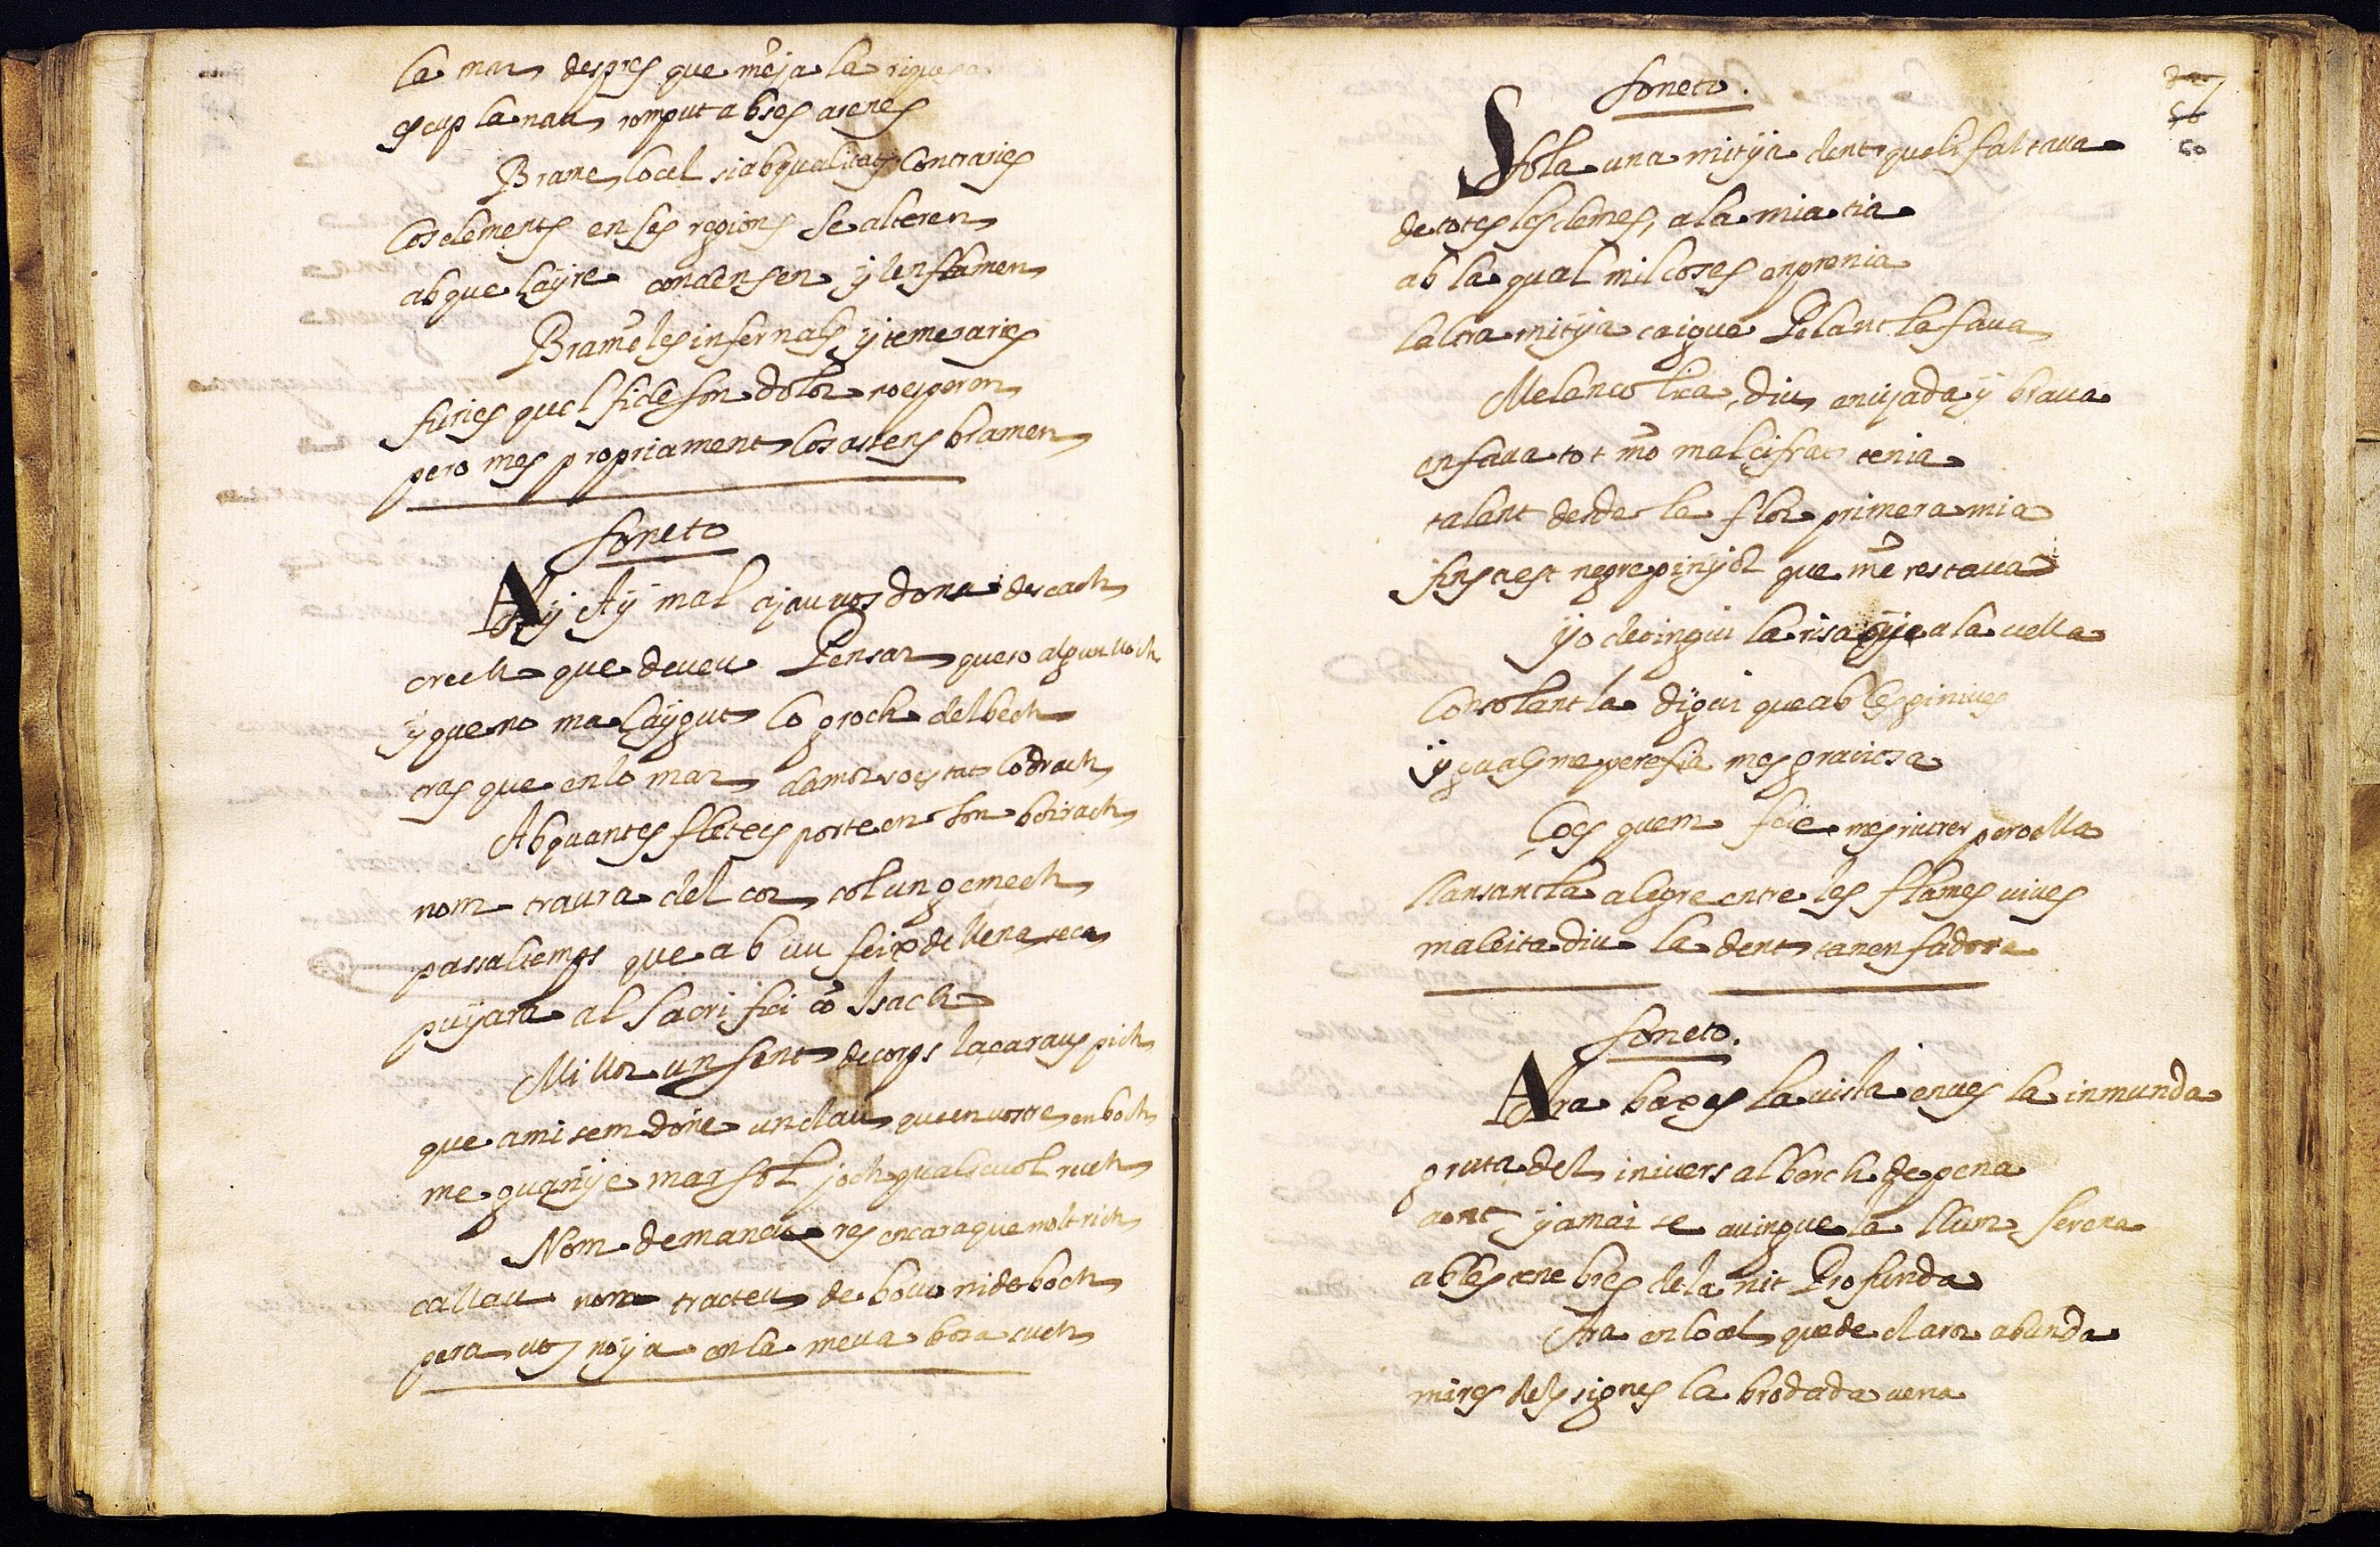 la mar despres que mẽja la riquesa
escup la nau romput ab ses arenes
Brame lo cel si ab qualitats Contraries
Los elements en ses regions se alteren
ab que layre condensen y lenflamen
Bramẽ les infernals y temeraries
furies quel fi de son dolor no esperen
pero mes propriament los asens bramen
Soneto
Ay Ay mal ajau vos dona descach
crech que deveu Pensar que so algun lloch
y que no ma saygut lo groch del bech
tras que en lo mar damor so estat lo drach
Ab quantes fletxes porte en son boirach
nom traura del cor sol un gemech
passaltemps que ab un feix de llena seca
puyara al Sacrifici cõ Isach
Millor un sent de corps la cara us pich
que a mi sem done un clau que en vostre enboch
me guanye mar sol joch qualsevol ruch
Nom demaneu res encara que molt rich
callau nom tracteu de bou ni de boch
pera vos noy a en la meua bosa such
50
Soneto.
Sola una mitja dent que li faltava
de totes les demes, a la mia tia
ab la qual mil coses enprenia
laltra mitja caigue Pelant la fava
Melencolica, diu enujada y brava
en fava tot mõ mal cifrat tenia
talent desde la flor primera mia
fins aest negre pinyol que mẽ restava
yo detingui la risa que a la vella
Consolant la digui que ab les ginives
ygualsme pere sia mes graciosa
Cos quem feie mes riurer pero ella
llansantla alegre entre les flames vives
maleita diu la dent tan enfadosa
Soneto.
Ara baxes la vista enves la inmunda
gruta del univers alberch de pena
aont yamai se avingue la llum serena
ab les tenebres de la nit Profunda
Ara en lo cel que de claror abunda
mires dels signes la brodada vena